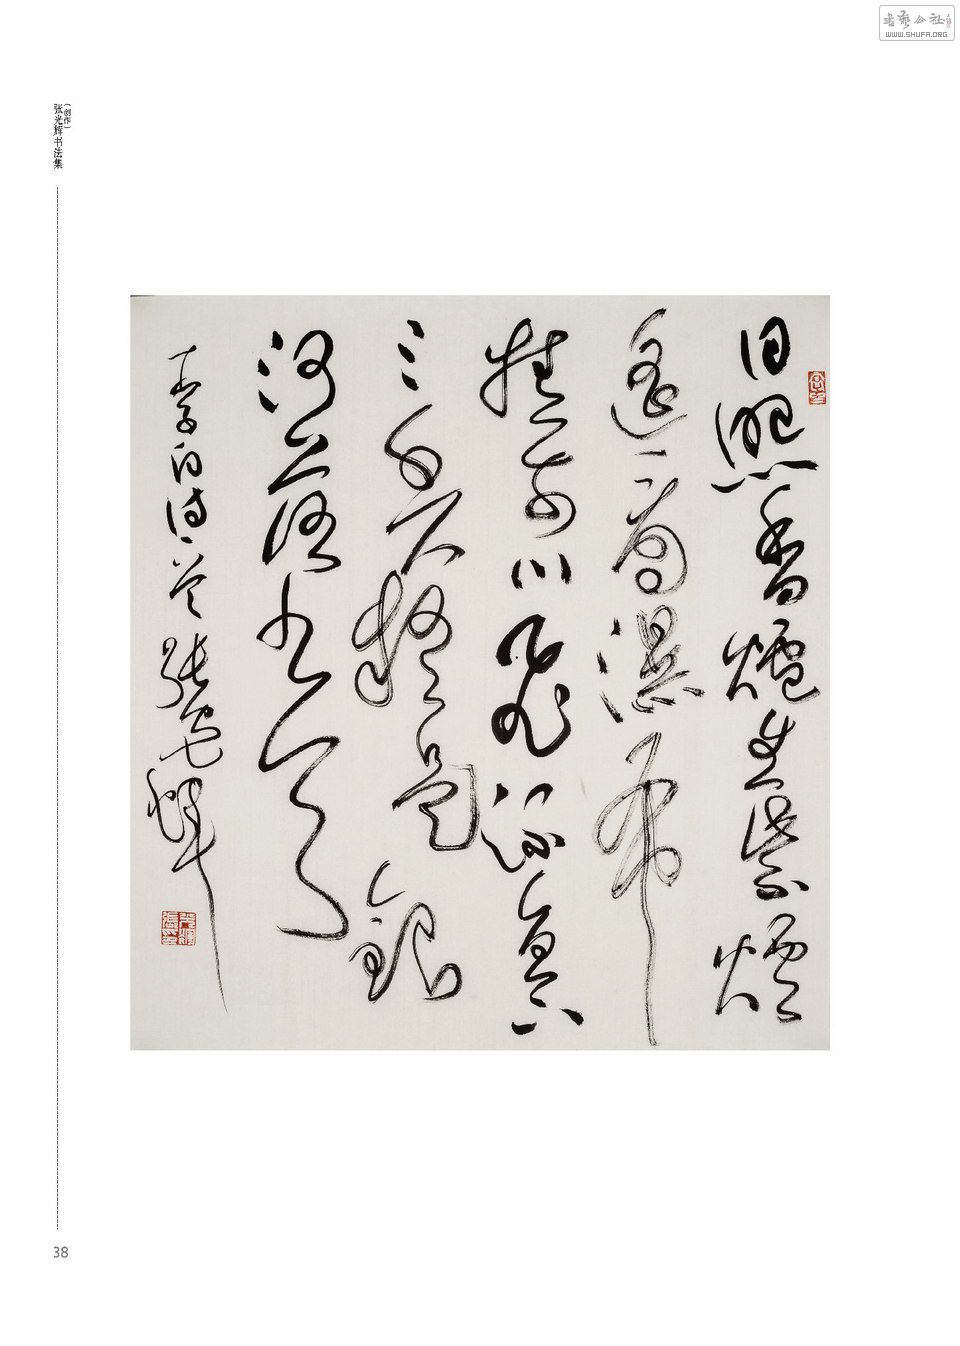 書藝公社
WWW.SHUFA.ORG
（创作）
张光辉书法集
日照香爐生紫煙
遙看瀑布
挂前川飛流直下
三千尺疑是銀
河落九天
李白诗一首張光輝
38